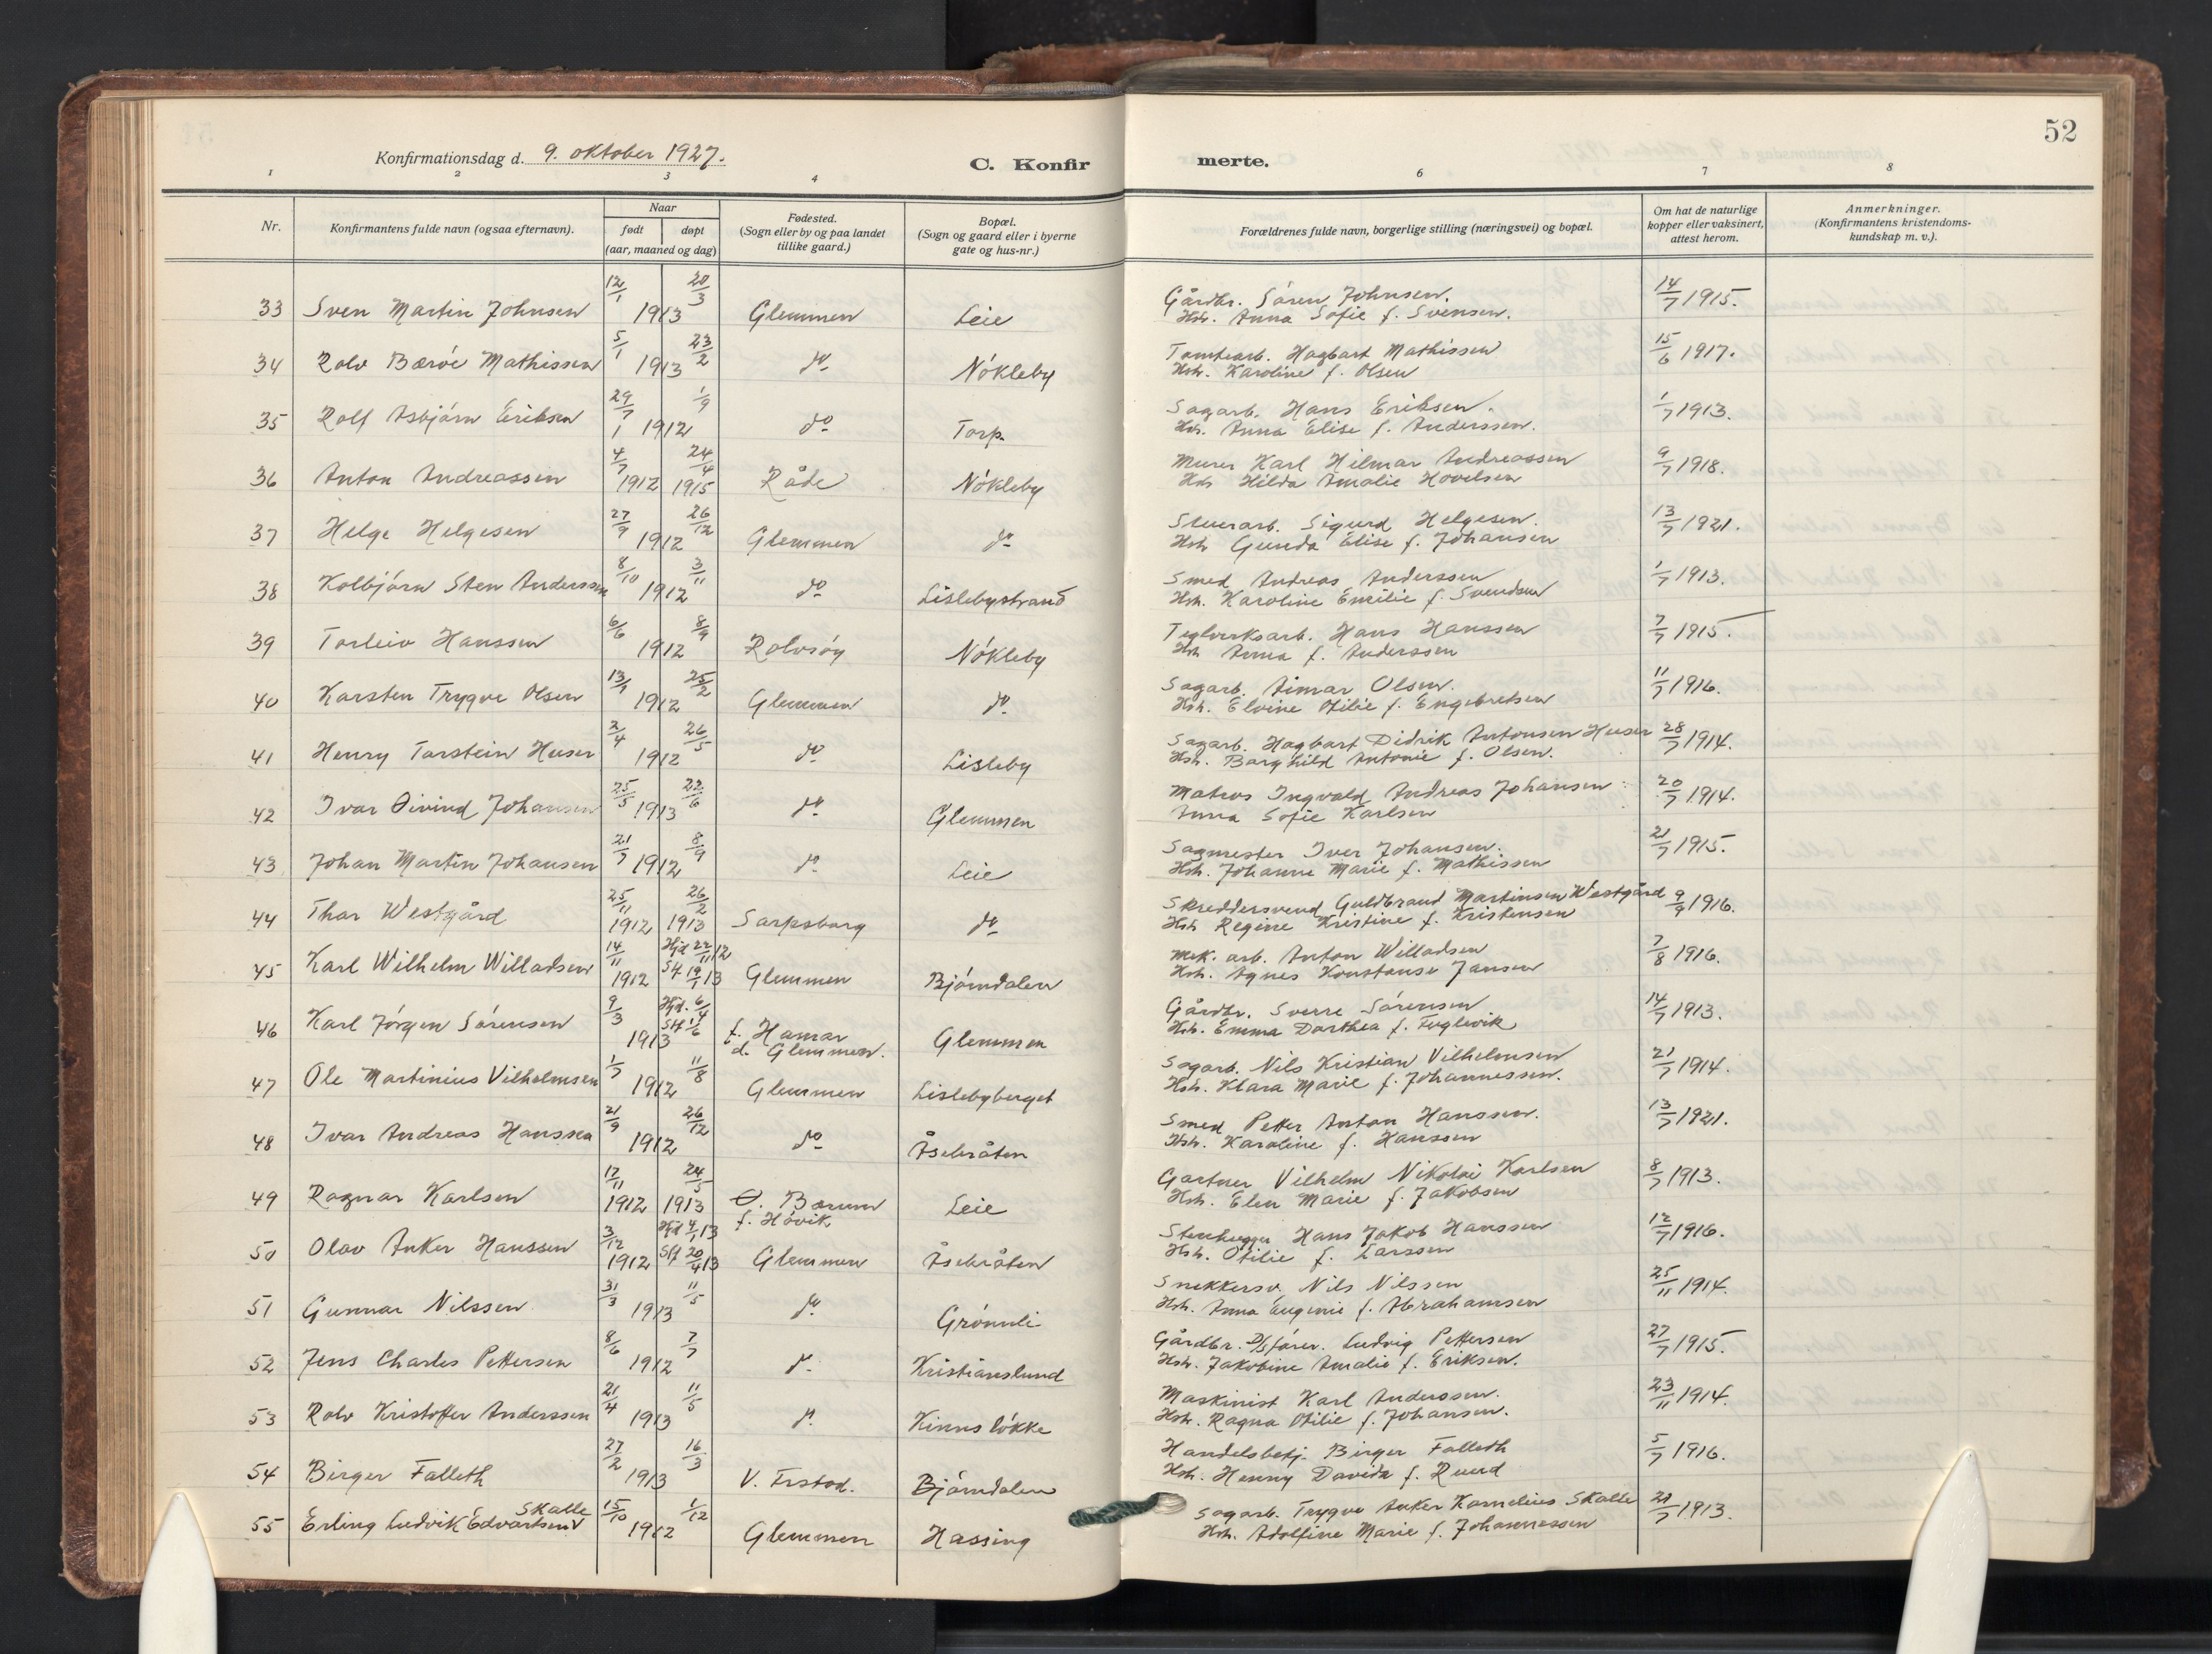 52
Konfirmationsdag d. 9. oktober 1927.
C. Konfir merte.
1 2 3 4 6 7 8
Nr.
Konfirmantens fulde navn (ogsaa efternavn).
Naar
født døpt
(aar, maaned og dag)
Fødested.
(Sogn eller by og paa landet
tillike gaard.)
Bopæl.
(Sogn og gaard eller i byerne
gate og hus-nr.)
Forældrenes fulde navn, borgerlige stilling (næringsvei) og bopæl.
Om hat de naturlige
kopper eller vaksinert,
attest herom.
Anmerkninger.
(Konfirmantens kristendoms-
kundskap m. v.).
33 Sven Martin Johnsen 12/1 20/3 1913 Glemmen Leie Gårdbr. Søren Johnsen. 14/7 1915.
Hstr. Anna Sofie f. Svensen.
34 Rolv Bærøe Mathissen 5/1 23/2 1913 do Nøkleby Tomtearb. Hagbart Mathissen 15/6 1917.
Hstr. Karoline f. Olsen
35 Rolf Asbjørn Eriksen 29/7 1/9 1912 do Torp. Sagarb. Hans Eriksen. 1/7 1913.
Hstr. Anna Elise f. Anderssen.
36 Anton Andreassen 4/7 1912 24/4 1915 Råde Nøkleby Murer Karl Hilmar Andreassen 9/7 1918.
Hstr Hilda Amalie Hovelsen
37 Helge Helgesen 27/9 26/12 1912 Glemmen do Stuerarb. Sigurd Helgesen. 13/7 1921.
Hstr Gunda Elise f. Johansen
38 Kolbjørn Sten Anderssen 8/10 3/11 1912 do Lislebystrand Smed Andreas Anderssen 1/7 1913.
Hstr. Karoline Emilie f. Svendsen
39 Torleiv Hanssen 6/6 8/9 1912 Rolvsøy Nøkleby Teglverksarb. Hans Hanssen 7/7 1915.
Hstr Anna f. Anderssen
40 Karsten Trygve Olsen 13/1 25/2 1912 Glemmen do Sagarb. Aimar Olsen. 11/7 1916.
Hstr. Elvine Otilie f. Engebretsen
41 Henry Torstein Huser 2/4 26/5 1912 do Lisleby Sagarb. Hagbart Didrik Antonsen Huser 28/7 1914.
Hstr. Borghild Antonie f. Olsen.
42 Ivar Øivind Johansen 25/5 22/6 1913 do Glemmen Matros Ingvald Andreas Johansen 20/7 1914.
Anna Sofie Karlsen
43 Johan Martin Johansen 21/7 8/9 1912 do Leie Sagmester Iver Johansen. 21/7 1915.
Hstr. Johanne Marie f. Mathissen
44 Thor Westgård 25/11 1912 26/2 1913 Sarpsborg do Skreddersvend Guldbrand Martinsen Westgård 9/9 1916.
Hstr Regine Kristine f. Kristensen
45 Karl Wilhelm Willadsen 14/11 1912 Hjd 22/11 12 Stf 19/1 13 Glemmen Bjørndalen Mek. arb. Anton Willadsen 7/8 1916.
Hstr. Agnes Konstanse Jansen
46 Karl Jørgen Sørensen 9/3 Hjd. 6/4 Stf 1/6 1913 f. Hamar d. Glemmen. Glemmen Gårdbr. Sverre Sørensen 14/7 1913.
Hstr. Emma Dorthea f. Fuglevik
47 Ole Martinius Vilhelmsen 1/7 11/8 1912 Glemmen Lislebyberget Sagarb. Nils Kristian Vilhelmsen 21/7 1914.
Hstr. Klara Marie f. Johannessen.
48 Ivar Andreas Hanssen 21/9 26/12 1912 do Åsebråten Smed Petter Anton Hanssen. 13/7 1921.
Hstr. Karoline f. Hanssen
49 Ragnar Karlsen 17/11 1912 24/5 1913 Ø. Bærum f. Høvik Leie Gartner Vilhelm Nikolai Karlsen 8/7 1913.
Hstr. Elen Marie f. Jakobsen
50 Olav Anker Hanssen 3/12 1912 Hjd 4/1 13 Stf 20/4 13 Glemmen Åsebråten Stenhugger Hans Jakob Hanssen 12/7 1916.
Hstr. Otilie f. Larssen
51 Gunnar Nilssen 31/3 11/5 1913 do Grønnli Snekkersv. Nils Nilssen 25/11 1914.
Hstr. Anna Eugenie f. Abrahamsen
52 Jens Charles Pettersen 8/6 7/7 1912 do Kristianslund Gårdbr. D/S fører. Ludvig Pettersen 27/7 1915.
Hstr. Jakobine Amalie f. Eriksen.
53 Rolv Kristoffer Anderssen 21/4 11/5 1913 do Kinnsløkke Maskinist Karl Anderssen. 23/11 1914.
Hstr. Ragna Otilie f. Johansen.
54 Birger Falleth 27/2 16/3 1913 V. Frstad. Bjørndalen Handelsbetj. Birger Falleth 5/7 1916.
Hstr. Henny Davida f. Ruud
55 Erling Ludvik Edvartsen Skalle 15/10 1/12 1912 Glemmen Hassing Sagarb. Trygve Anker Kornelius Skalle 21/7 1913.
Hstr. Adolfine Marie f. Johannessen